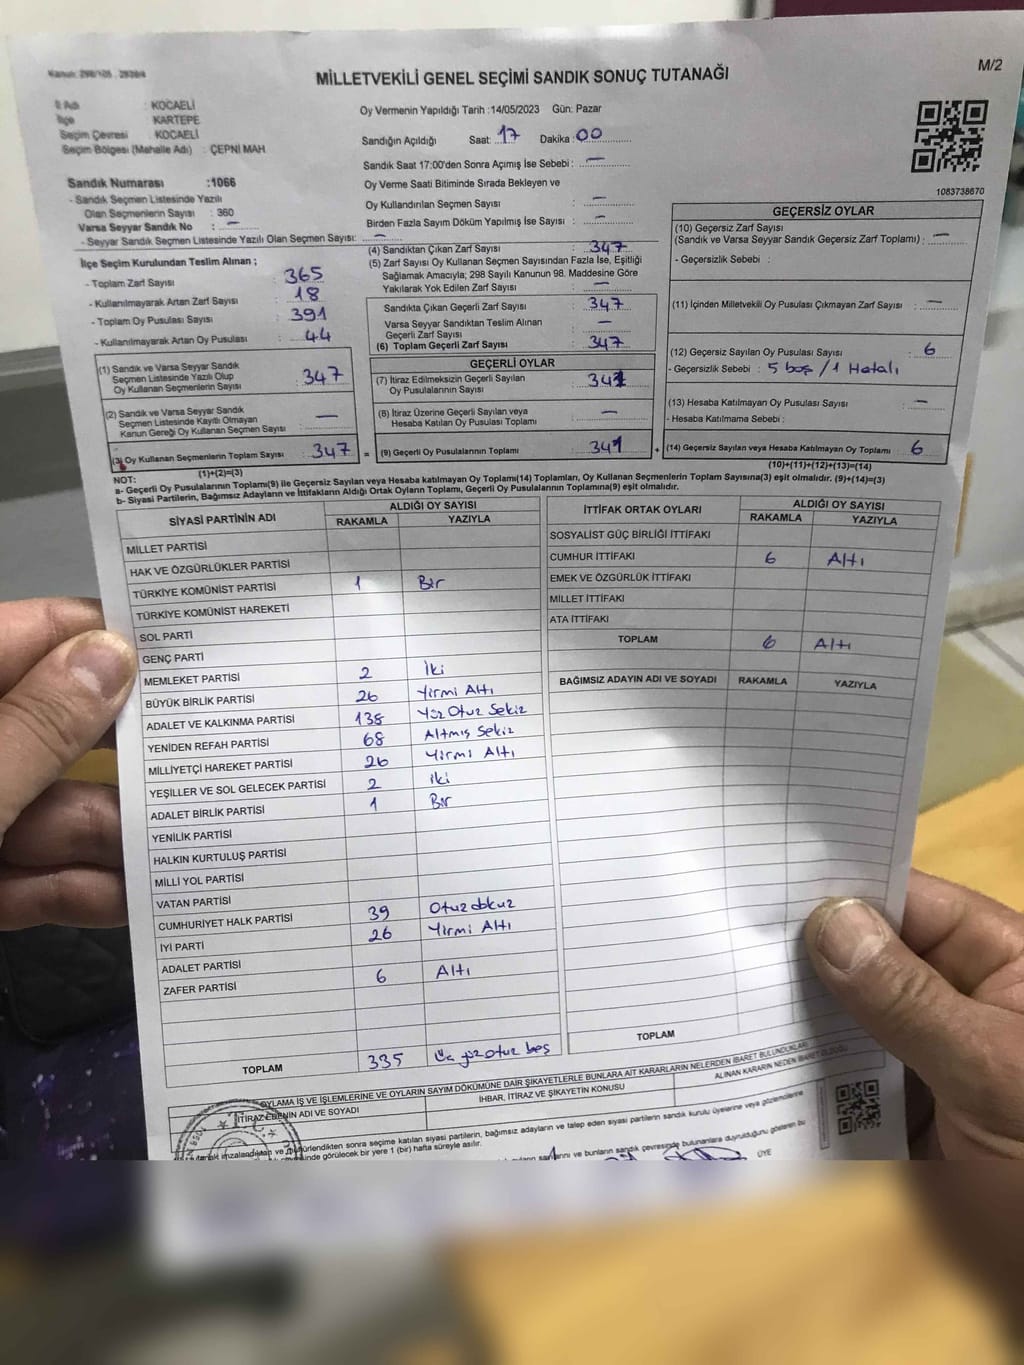 Kanun: 298/105 , 2839/4
M/2
MİLLETVEKİLİ GENEL SEÇİMİ SANDIK SONUÇ TUTANAĞI
İl Adı : KOCAELİ
İlçe : KARTEPE
Seçim Çevresi : KOCAELİ
Seçim Bölgesi (Mahalle Adı) : ÇEPNİ MAH
Sandık Numarası :1066
- Sandık Seçmen Listesinde Yazılı
Olan Seçmenlerin Sayısı : 360
Varsa Seyyar Sandık No : —
- Seyyar Sandık Seçmen Listesinde Yazılı Olan Seçmen Sayısı: —
Oy Vermenin Yapıldığı Tarih :14/05/2023 Gün: Pazar
Sandığın Açıldığı Saat: 17 Dakika: 00
Sandık Saat 17:00'den Sonra Açımış İse Sebebi : —
Oy Verme Saati Bitiminde Sırada Bekleyen ve
Oy Kullandırılan Seçmen Sayısı : —
Birden Fazla Sayım Döküm Yapılmış İse Sayısı : —
1083738670
İlçe Seçim Kurulundan Teslim Alınan ;
- Toplam Zarf Sayısı : 365
- Kullanılmayarak Artan Zarf Sayısı : 18
- Toplam Oy Pusulası Sayısı : 391
- Kullanılmayarak Artan Oy Pusulası : 44
(1) Sandık ve Varsa Seyyar Sandık
Seçmen Listesinde Yazılı Olup
Oy Kullanan Seçmenlerin Sayısı : 347
(2) Sandık ve Varsa Seyyar Sandık
Seçmen Listesinde Kayıtlı Olmayan
Kanun Gereği Oy Kullanan Seçmen Sayısı : —
(3) Oy Kullanan Seçmenlerin Toplam Sayısı : 347
(1)+(2)=(3)
(4) Sandıktan Çıkan Zarf Sayısı : 347
(5) Zarf Sayısı Oy Kullanan Seçmen Sayısından Fazla İse, Eşitliği
Sağlamak Amacıyla; 298 Sayılı Kanunun 98. Maddesine Göre
Yakılarak Yok Edilen Zarf Sayısı : —
Sandıkta Çıkan Geçerli Zarf Sayısı : 347
Varsa Seyyar Sandıktan Teslim Alınan
Geçerli Zarf Sayısı : —
(6) Toplam Geçerli Zarf Sayısı : 347
GEÇERLİ OYLAR
(7) İtiraz Edilmeksizin Geçerli Sayılan
Oy Pusulalarının Sayısı : 341
(8) İtiraz Üzerine Geçerli Sayılan veya
Hesaba Katılan Oy Pusulası Toplamı : —
= (9) Geçerli Oy Pusulalarının Toplamı : 341 +
GEÇERSİZ OYLAR
(10) Geçersiz Zarf Sayısı
(Sandık ve Varsa Seyyar Sandık Geçersiz Zarf Toplamı) : —
- Geçersizlik Sebebi :
(11) İçinden Milletvekili Oy Pusulası Çıkmayan Zarf Sayısı : —
(12) Geçersiz Sayılan Oy Pusulası Sayısı : 6
- Geçersizlik Sebebi : 5 boş / 1 Hatalı
(13) Hesaba Katılmayan Oy Pusulası Sayısı : —
- Hesaba Katılmama Sebebi :
(14) Geçersiz Sayılan veya Hesaba Katılmayan Oy Toplamı : 6
(10)+(11)+(12)+(13)=(14)
NOT:
a- Geçerli Oy Pusulalarının Toplamı(9) ile Geçersiz Sayılan veya Hesaba katılmayan Oy Toplamı(14) Toplamları, Oy Kullanan Seçmenlerin Toplam Sayısına(3) eşit olmalıdır. (9)+(14)=(3)
b- Siyasi Partilerin, Bağımsız Adayların ve İttifakların Aldığı Ortak Oyların Toplamı, Geçerli Oy Pusulalarının Toplamına(9) eşit olmalıdır.
SİYASİ PARTİNİN ADI ALDIĞI OY SAYISI
RAKAMLA YAZIYLA
MİLLET PARTİSİ
HAK VE ÖZGÜRLÜKLER PARTİSİ
TÜRKİYE KOMÜNİST PARTİSİ 1 Bir
TÜRKİYE KOMÜNİST HAREKETİ
SOL PARTİ
GENÇ PARTİ
MEMLEKET PARTİSİ 2 İki
BÜYÜK BİRLİK PARTİSİ 26 Yirmi Altı
ADALET VE KALKINMA PARTİSİ 138 Yüz Otuz Sekiz
YENİDEN REFAH PARTİSİ 68 Altmış Sekiz
MİLLİYETÇİ HAREKET PARTİSİ 26 Yirmi Altı
YEŞİLLER VE SOL GELECEK PARTİSİ 2 iki
ADALET BİRLİK PARTİSİ 1 Bir
YENİLİK PARTİSİ
HALKIN KURTULUŞ PARTİSİ
MİLLİ YOL PARTİSİ
VATAN PARTİSİ
CUMHURİYET HALK PARTİSİ 39 Otuz dokuz
İYİ PARTİ 26 Yirmi Altı
ADALET PARTİSİ
ZAFER PARTİSİ 6 Altı
TOPLAM 335 Üç yüz otuz beş
İTTİFAK ORTAK OYLARI ALDIĞI OY SAYISI
RAKAMLA YAZIYLA
SOSYALİST GÜÇ BİRLİĞİ İTTİFAKI
CUMHUR İTTİFAKI 6 Altı
EMEK VE ÖZGÜRLÜK İTTİFAKI
MİLLET İTTİFAKI
ATA İTTİFAKI
TOPLAM 6 Altı
BAĞIMSIZ ADAYIN ADI VE SOYADI RAKAMLA YAZIYLA
TOPLAM
OYLAMA İŞ VE İŞLEMLERİNE VE OYLARIN SAYIM DÖKÜMÜNE DAİR ŞİKAYETLERLE BUNLARA AİT KARARLARIN NELERDEN İBARET BULUNDUKLARI
İTİRAZ EDENİN ADI VE SOYADI İHBAR, İTİRAZ VE ŞİKAYETİN KONUSU ALINAN KARARIN NEDEN İBARET OLDUĞU
tutanak imzalandıktan ve mühürlendikten sonra seçime katılan siyasi partilerin, bağımsız adayların ve talep eden siyasi partilerin sandık kurulu üyelerine veya gözlemcilerine
görülecek bir yere 1 (bir) hafta süreyle asılır.
ve bunların sandık çevresinde bulunanlara duyurulduğunu gösteren bu
ÜYE